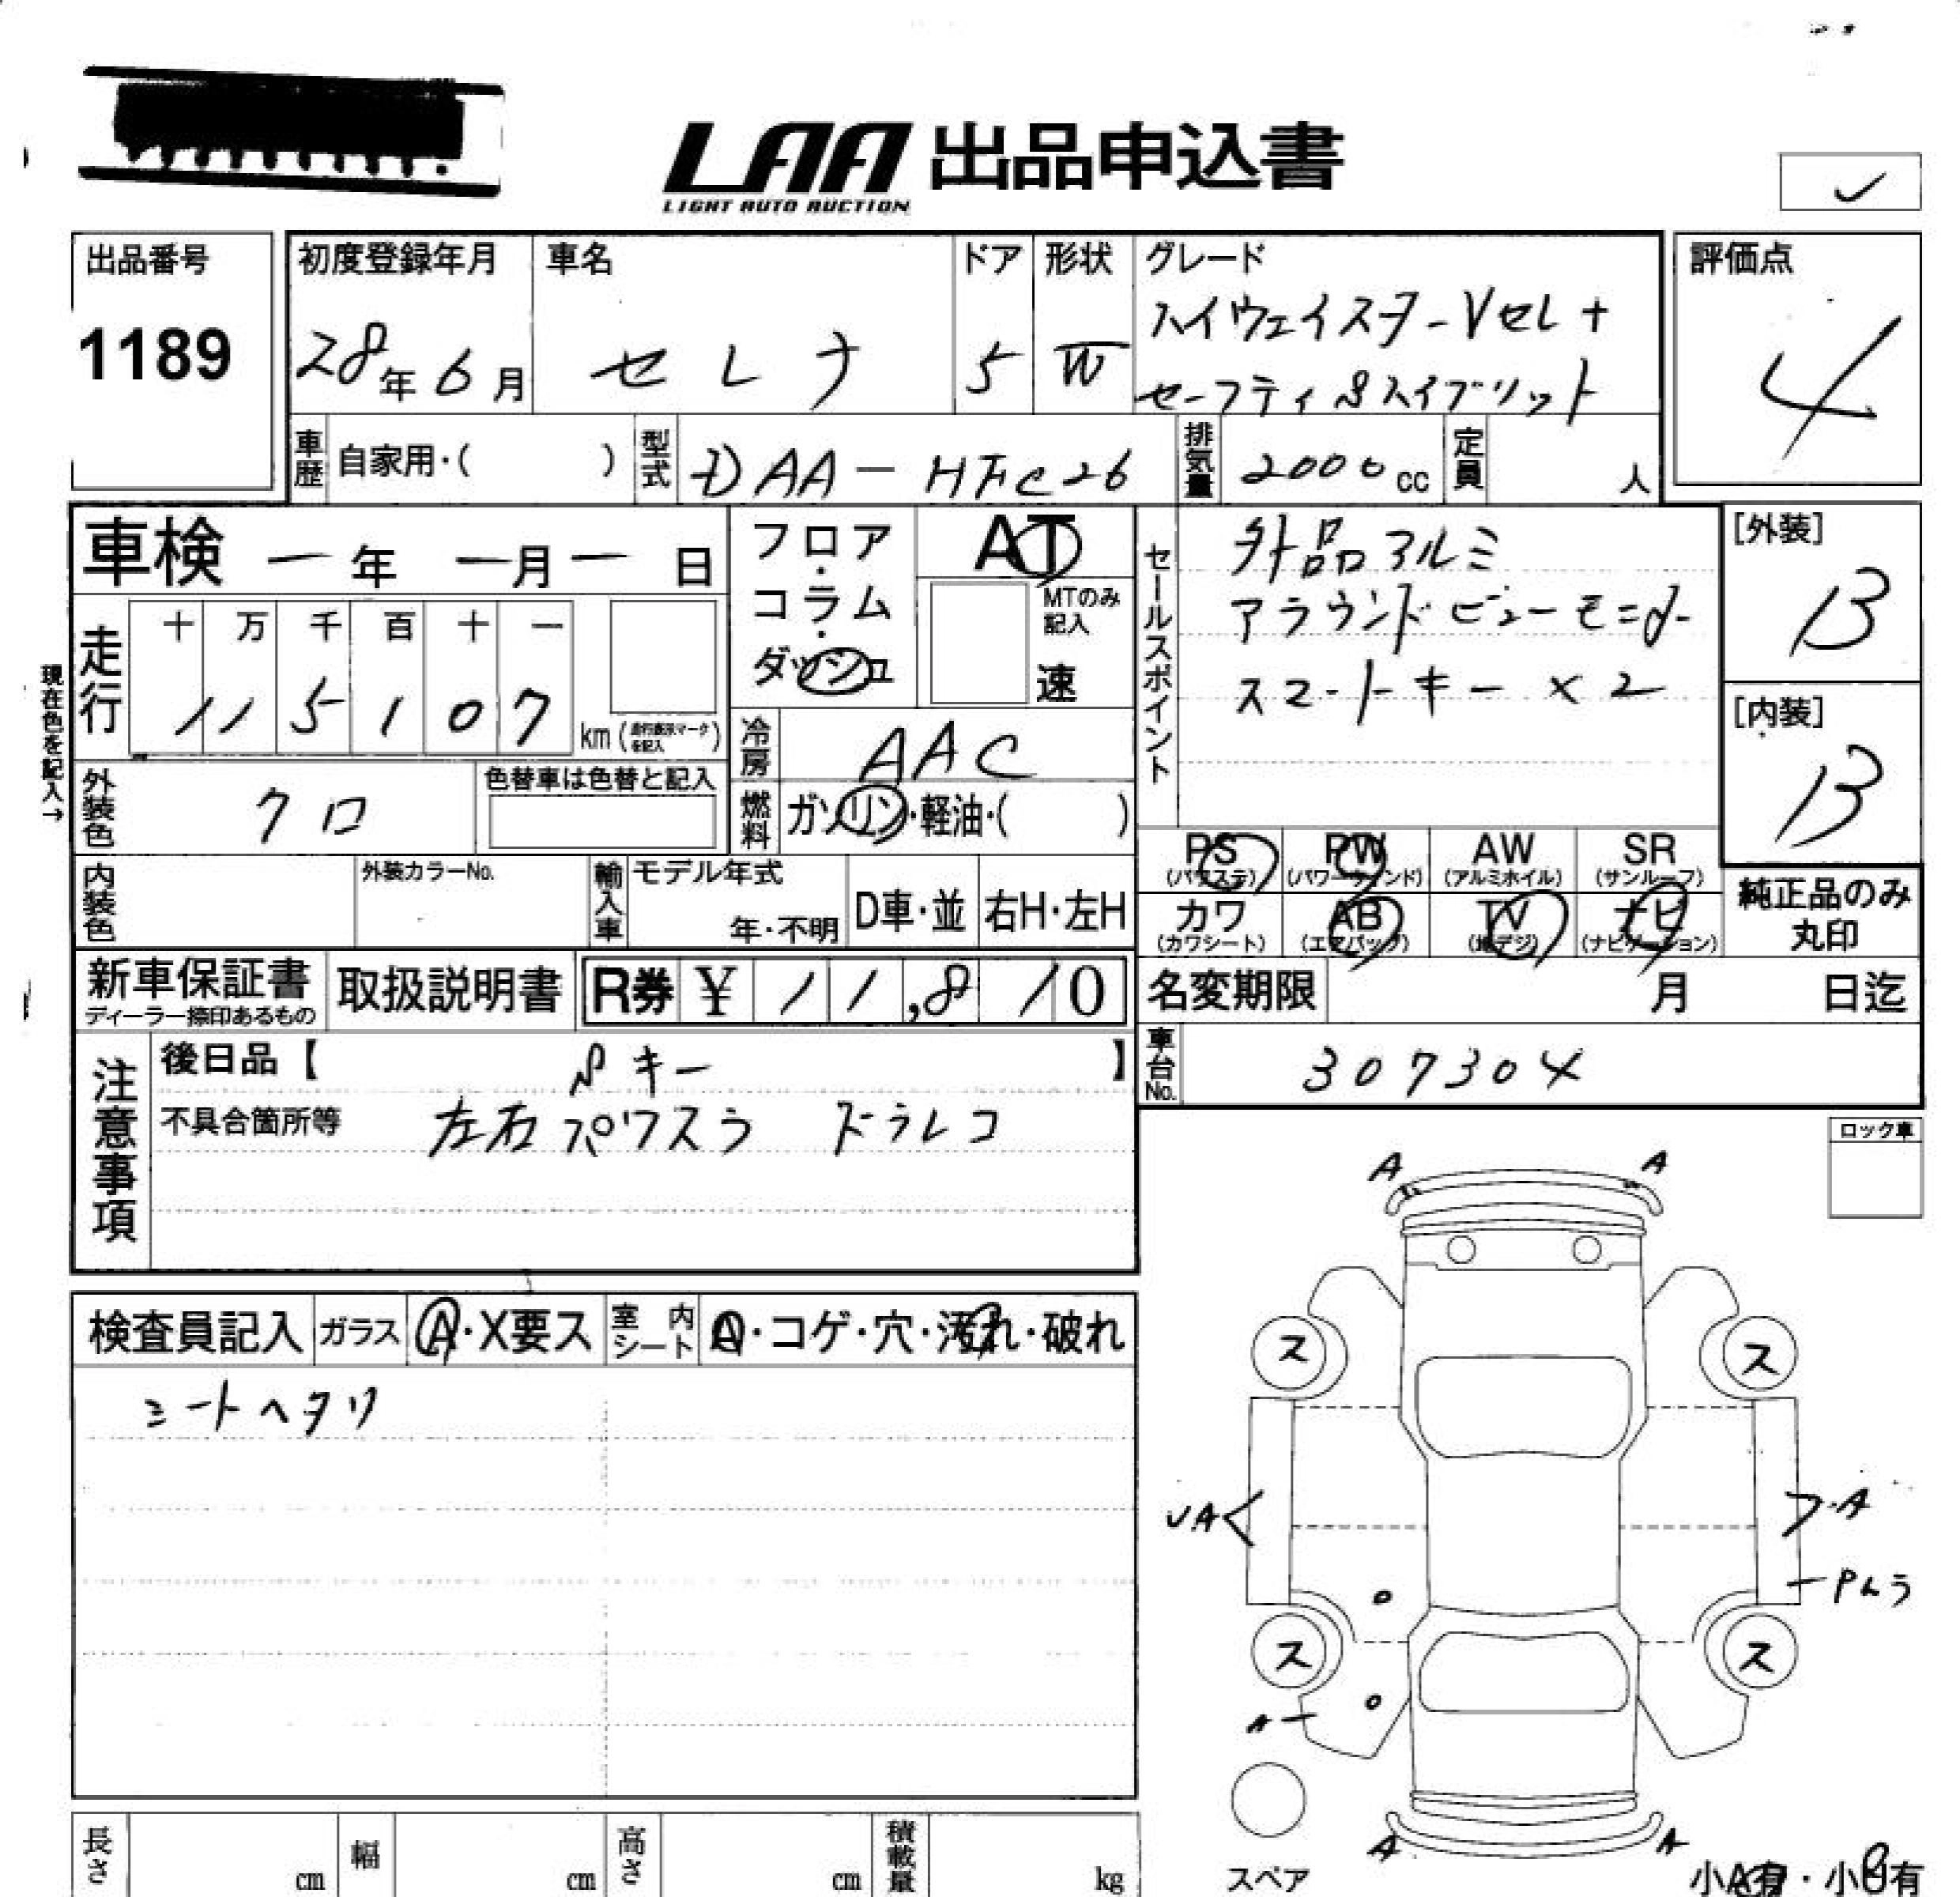 LAA 出品申込書
LIGHT AUTO AUCTION
出品番号
1189
初度登録年月
28年6月
車名
セレナ
ドア
5
形状
W
グレード
ハイウェイスター Vセレ+
セーフティ&ハイブリット
評価点
4
車歴
自家用・( )
型式
DAA-HFC26
排気量
2000cc
定員
人
車検 ー年 ー月ー日
走行
十 万 千 百 十 一
1 1 5 1 0 7 km (走行表示マークを記入)
現在色を記入→
外装色
クロ
色替車は色替と記入
内装色
外装カラーNo.
フロア・コラム・ダッシュ
AT
MTのみ記入
速
冷房
AAC
燃料
ガソリン・軽油・( )
輸入車
モデル年式
年・不明
D車・並
右H・左H
セールスポイント
外品アルミ
アラウンドビューモニター
スマートキー×2
[外装]
B
[内装]
B
PS (パワステ)
PW (パワーウィンド)
AW (アルミホイル)
SR (サンルーフ)
カワ (カワシート)
AB (エアバッグ)
TV (地デジ)
ナビ (ナビゲーション)
純正品のみ丸印
新車保証書
ディーラー捺印あるもの
取扱説明書
R券 ¥ 11,810
名変期限
月 日迄
車台No.
307304
注意事項
後日品【 キー 】
不具合箇所等
左右パワスラ ドラレコ
ロック車
検査員記入
ガラス
A・X要ス
室内シート
A・コゲ・穴・汚れ・破れ
シートヘタリ
A A
ス ス
UA A
Pんう
ス ス
A
A A
スペア
小A有・小U有
長さ cm
幅 cm
高さ cm
積載量 kg